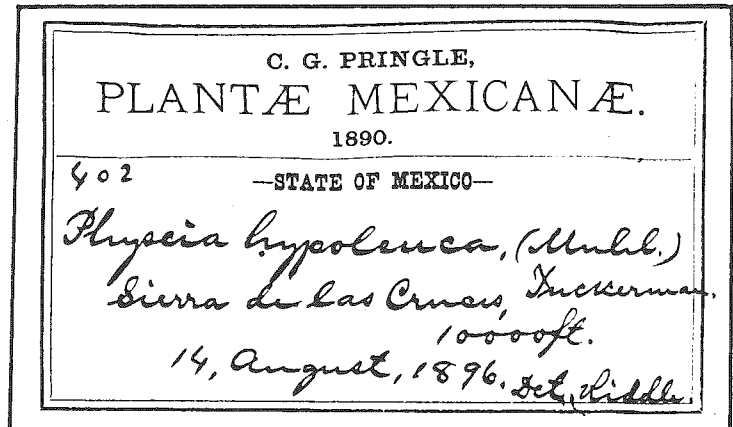 C. G. PRINGLE,
PLANTÆ MEXICANÆ.
1890.
402 —STATE OF MEXICO—
Physcia hypoleuca, (Muhl.)
Sierra de las Cruces, Tuckerman.
10000ft.
14, August, 1896. Det. Riddle.